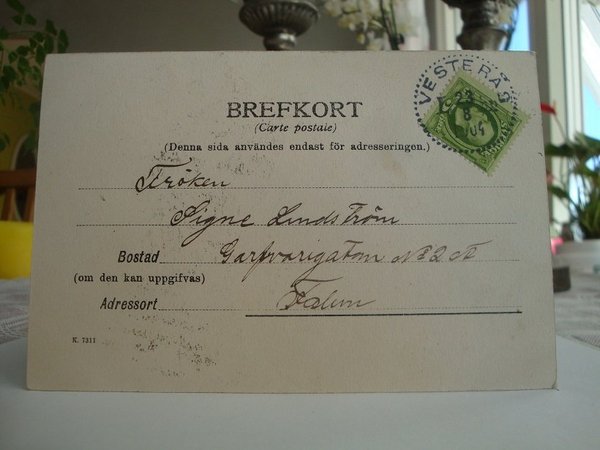 VESTERÅS
22
8
BREFKORT
(Carte postale)
(Denna sida användes endast för adresseringen.)
Fröken
Signe Lindström
Bostad Garfvarigatan No 2 A
(om den kan uppgifvas)
Adressort Falun
K. 7311